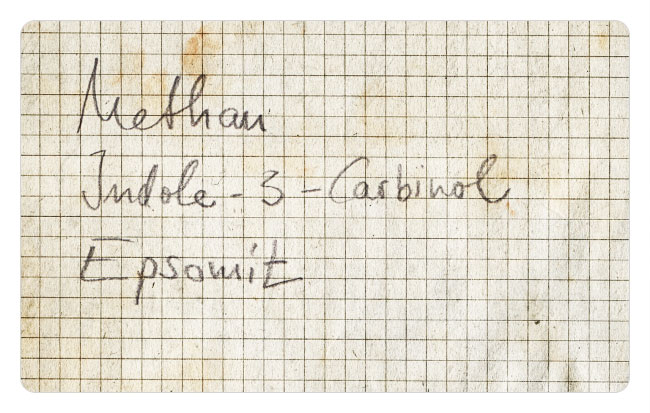 Methan
Indole-3-Carbinol
Epsomit